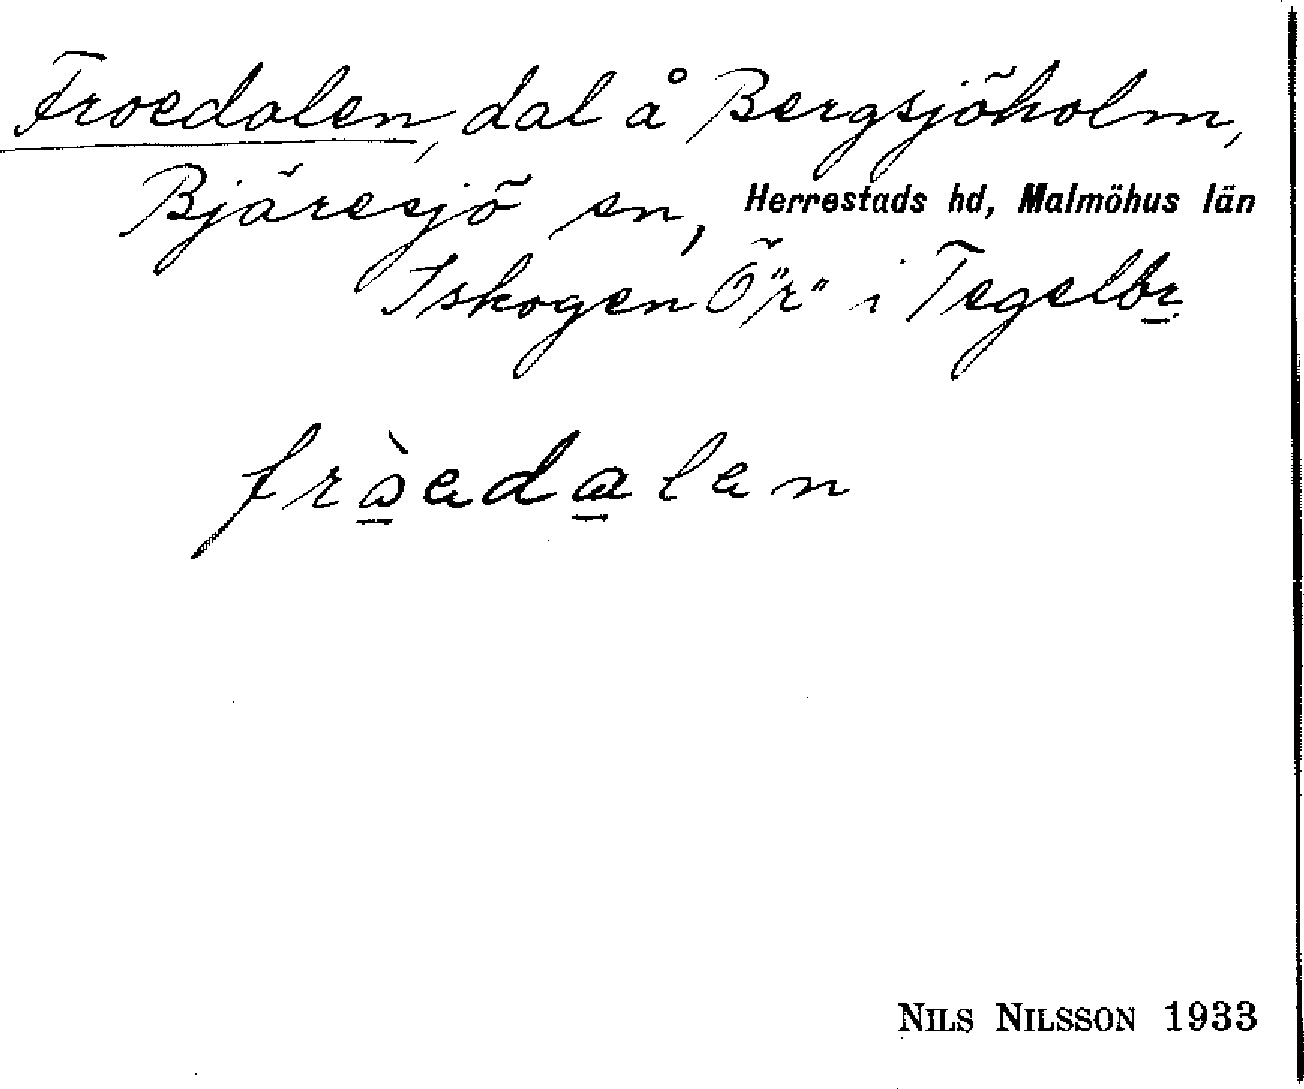 Froedalen, dal å Bergsjöholm,
Bjäresjö sn, Herrestads hd, Malmöhus län
I skogen Ö"r" i Tegelbr
fròedalen
NILS NILSSON 1933